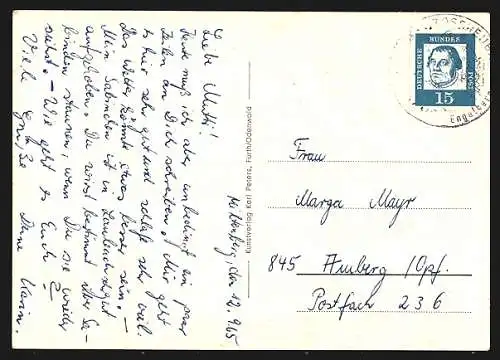 Miltenberg, den 12.9.65
Liebe Mutti!
Heute muß ich aber unbedingt ein paar
Zeilen an Dich schreiben. Mir geht
es hier sehr gut und schlafe sehr viel.
Das Wetter könnte etwas besser sein. –
Mein Sabinchen ist in Laubach gut
aufgehoben. Du wirst bestimmt über Sa-
binchen staunen, wenn Du sie wieder
siehst. – Wie geht es Euch?
Viele Grüße Deine Karin.
Kunstverlag Karl Peters, Fürth/Odenwald
DEUTSCHE BUNDESPOST
15
Frau
Marga Mayr
845 Amberg/Opf.
Postfach 236